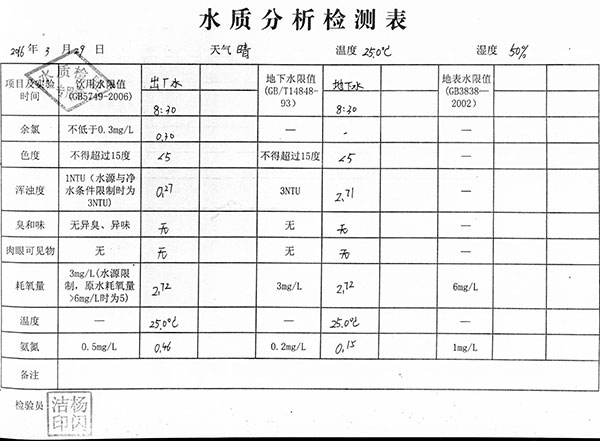 水质分析检测表
2016年 3 月 29 日 天气 晴 温度 25.0℃ 湿度 50%
水质检
专用
项目及实验时间 饮用水限值(GB5749-2006) 出厂水 8:30 地下水限值(GB/T14848-93) 地下水 8:30 地表水限值(GB3838—2002)
余氯 不低于0.3mg/L 0.30 — - —
色度 不得超过15度 <5 不得超过15度 <5 —
浑浊度 1NTU(水源与净水条件限制时为3NTU) 0.27 3NTU 2.71 —
臭和味 无异臭、异味 无 无 无 —
肉眼可见物 无 无 无 无 —
耗氧量 3mg/L(水源限制,原水耗氧量>6mg/L时为5) 2.72 3mg/L 2.72 6mg/L
温度 — 25.0℃ — 25.0℃ —
氨氮 0.5mg/L 0.46 0.2mg/L 0.15 1mg/L
备注
检验员 杨闪洁印